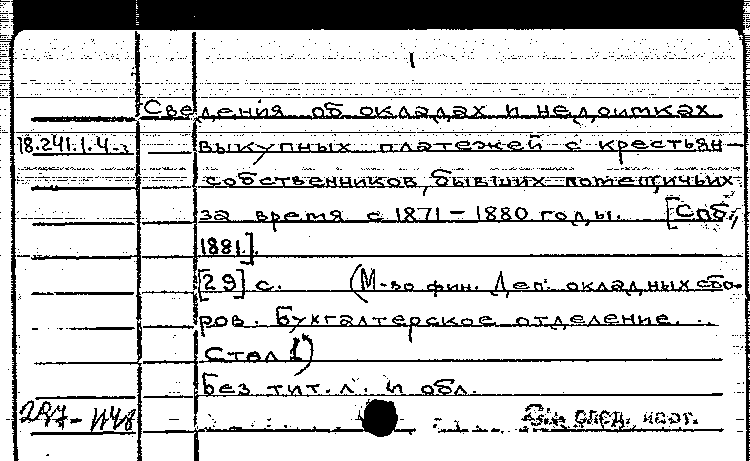 1
Сведения об окладах и недоимках
18.241.1.4-3 выкупных платежей с крестьян-
собственников, бывших помещичьих
за время с 1871 – 1880 годы. [Спб.,
1881].
[29] с. (М-во фин. Деп. окладных сбо-
ров. Бухгалтерское отделение.
Стол 1)
Без тит. л. и обл.
См. след. карт.